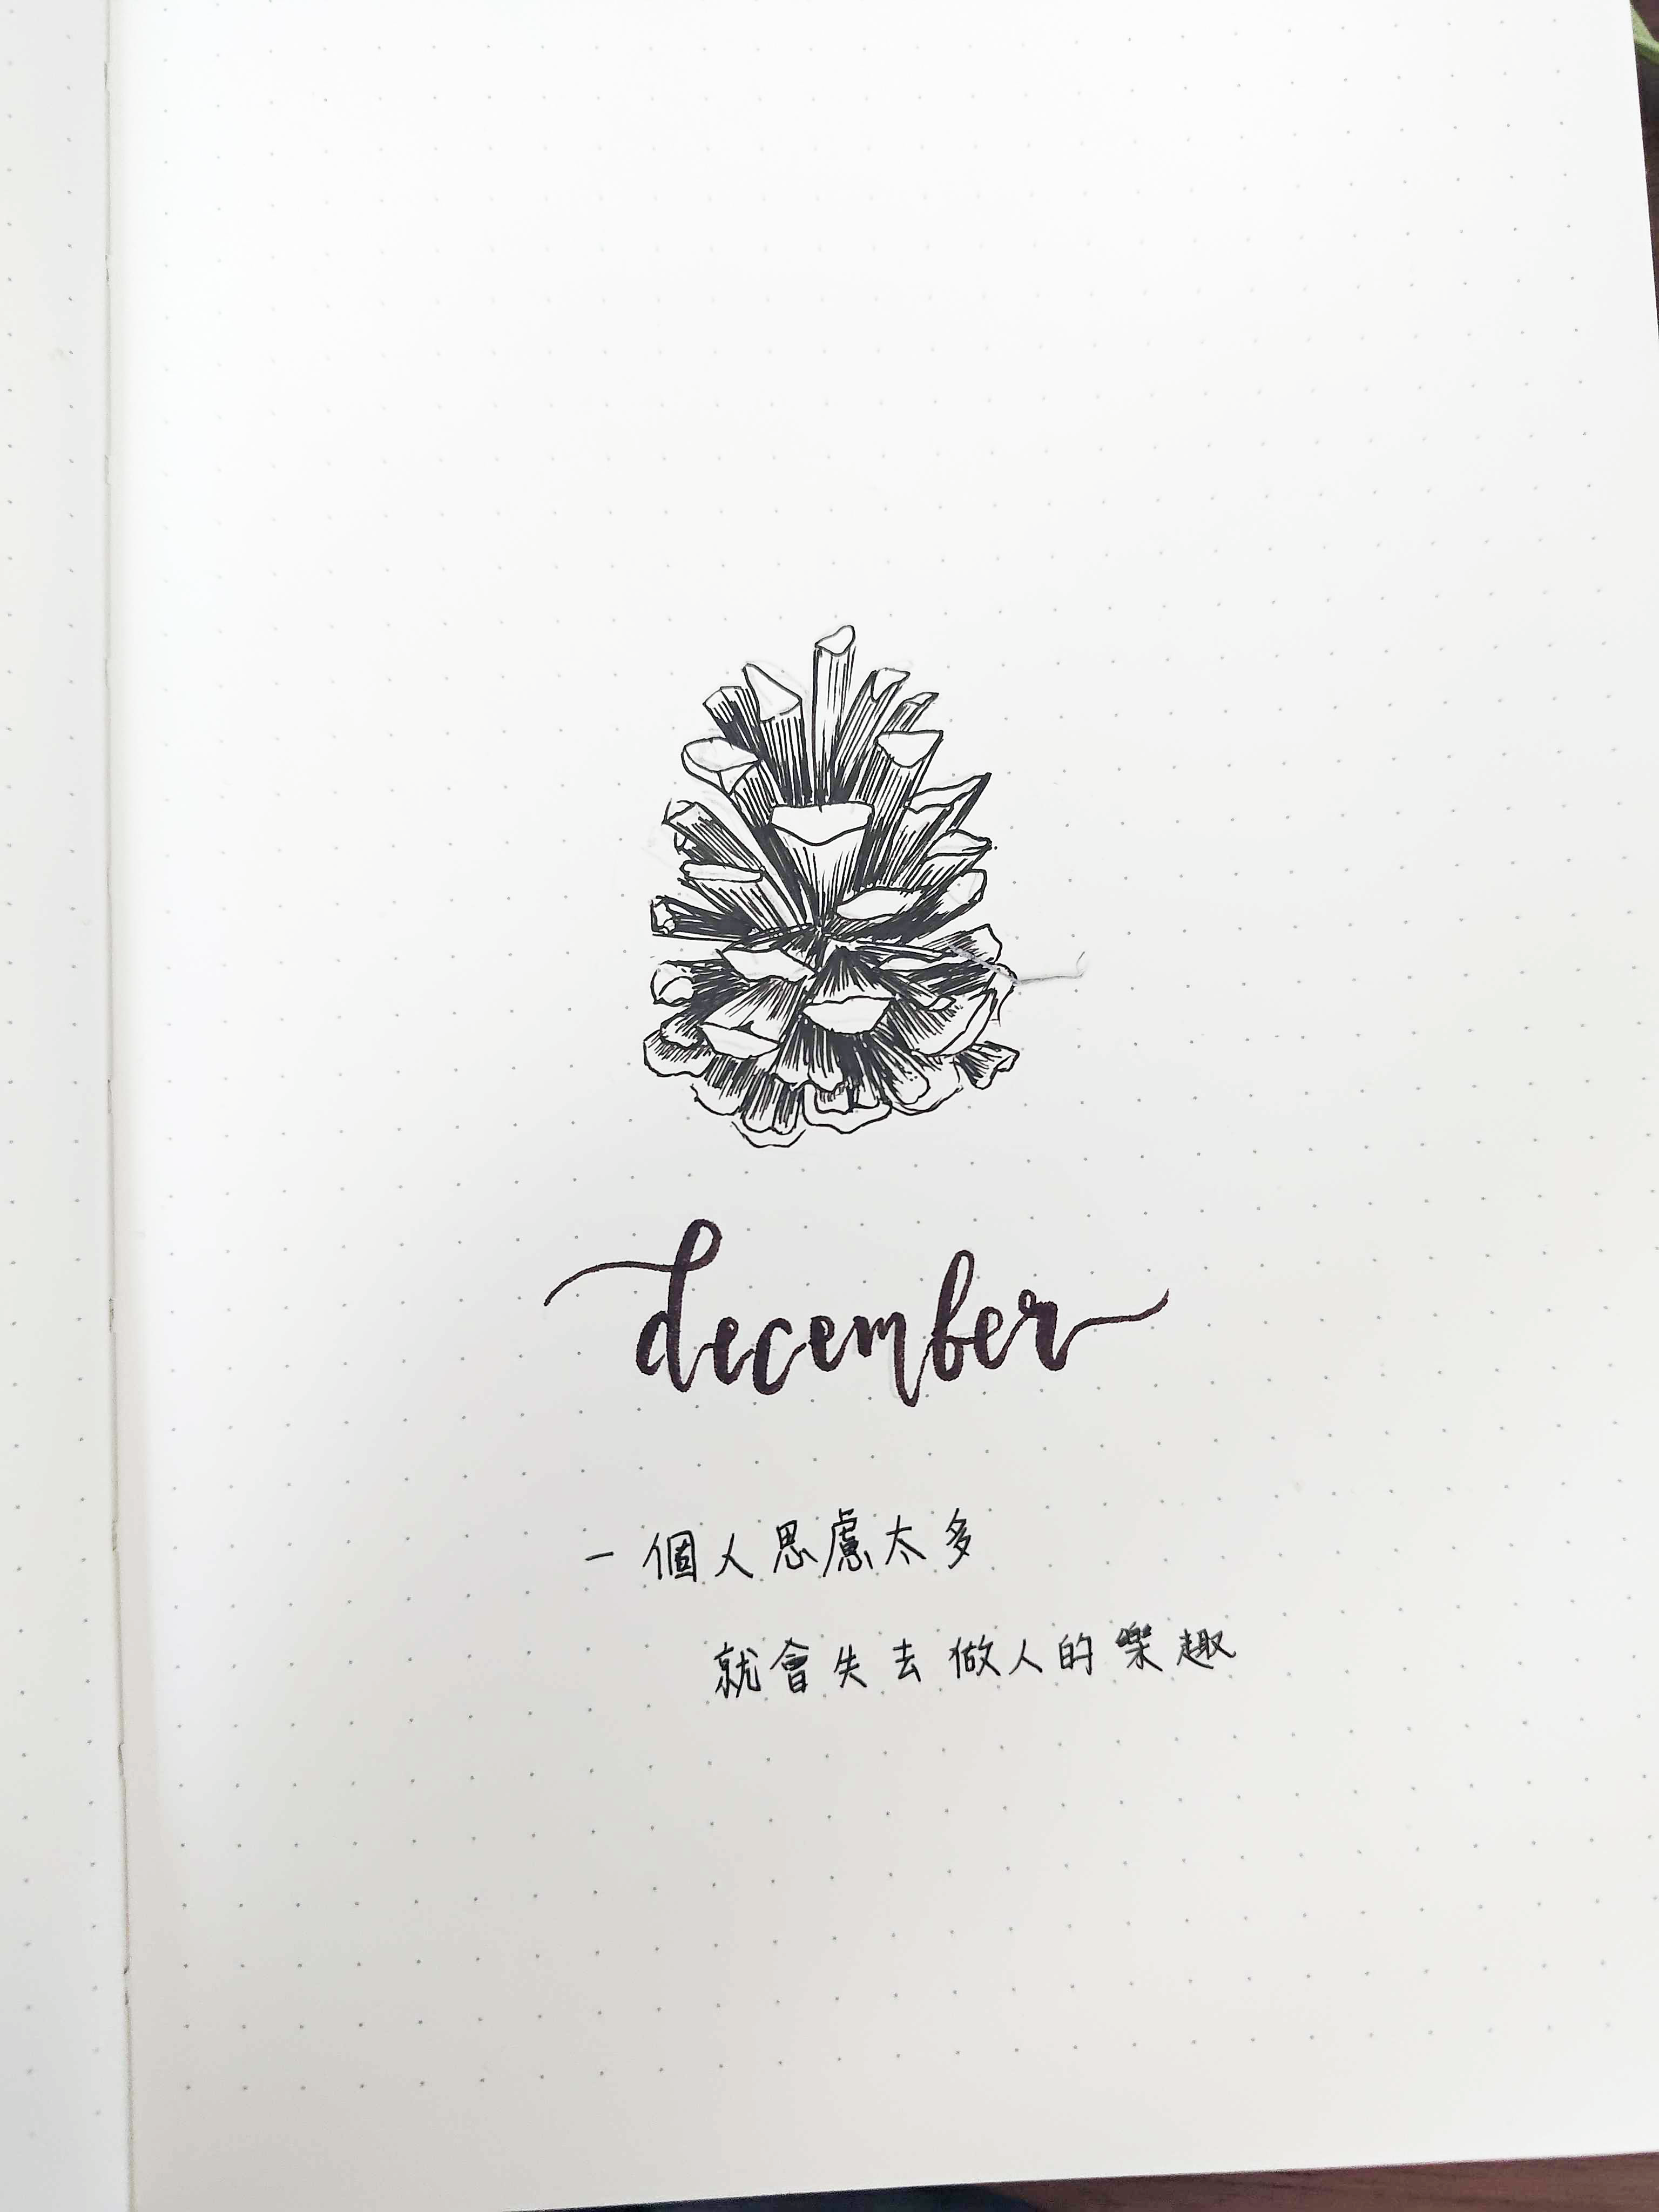 december
一個人思慮太多
就會失去做人的樂趣